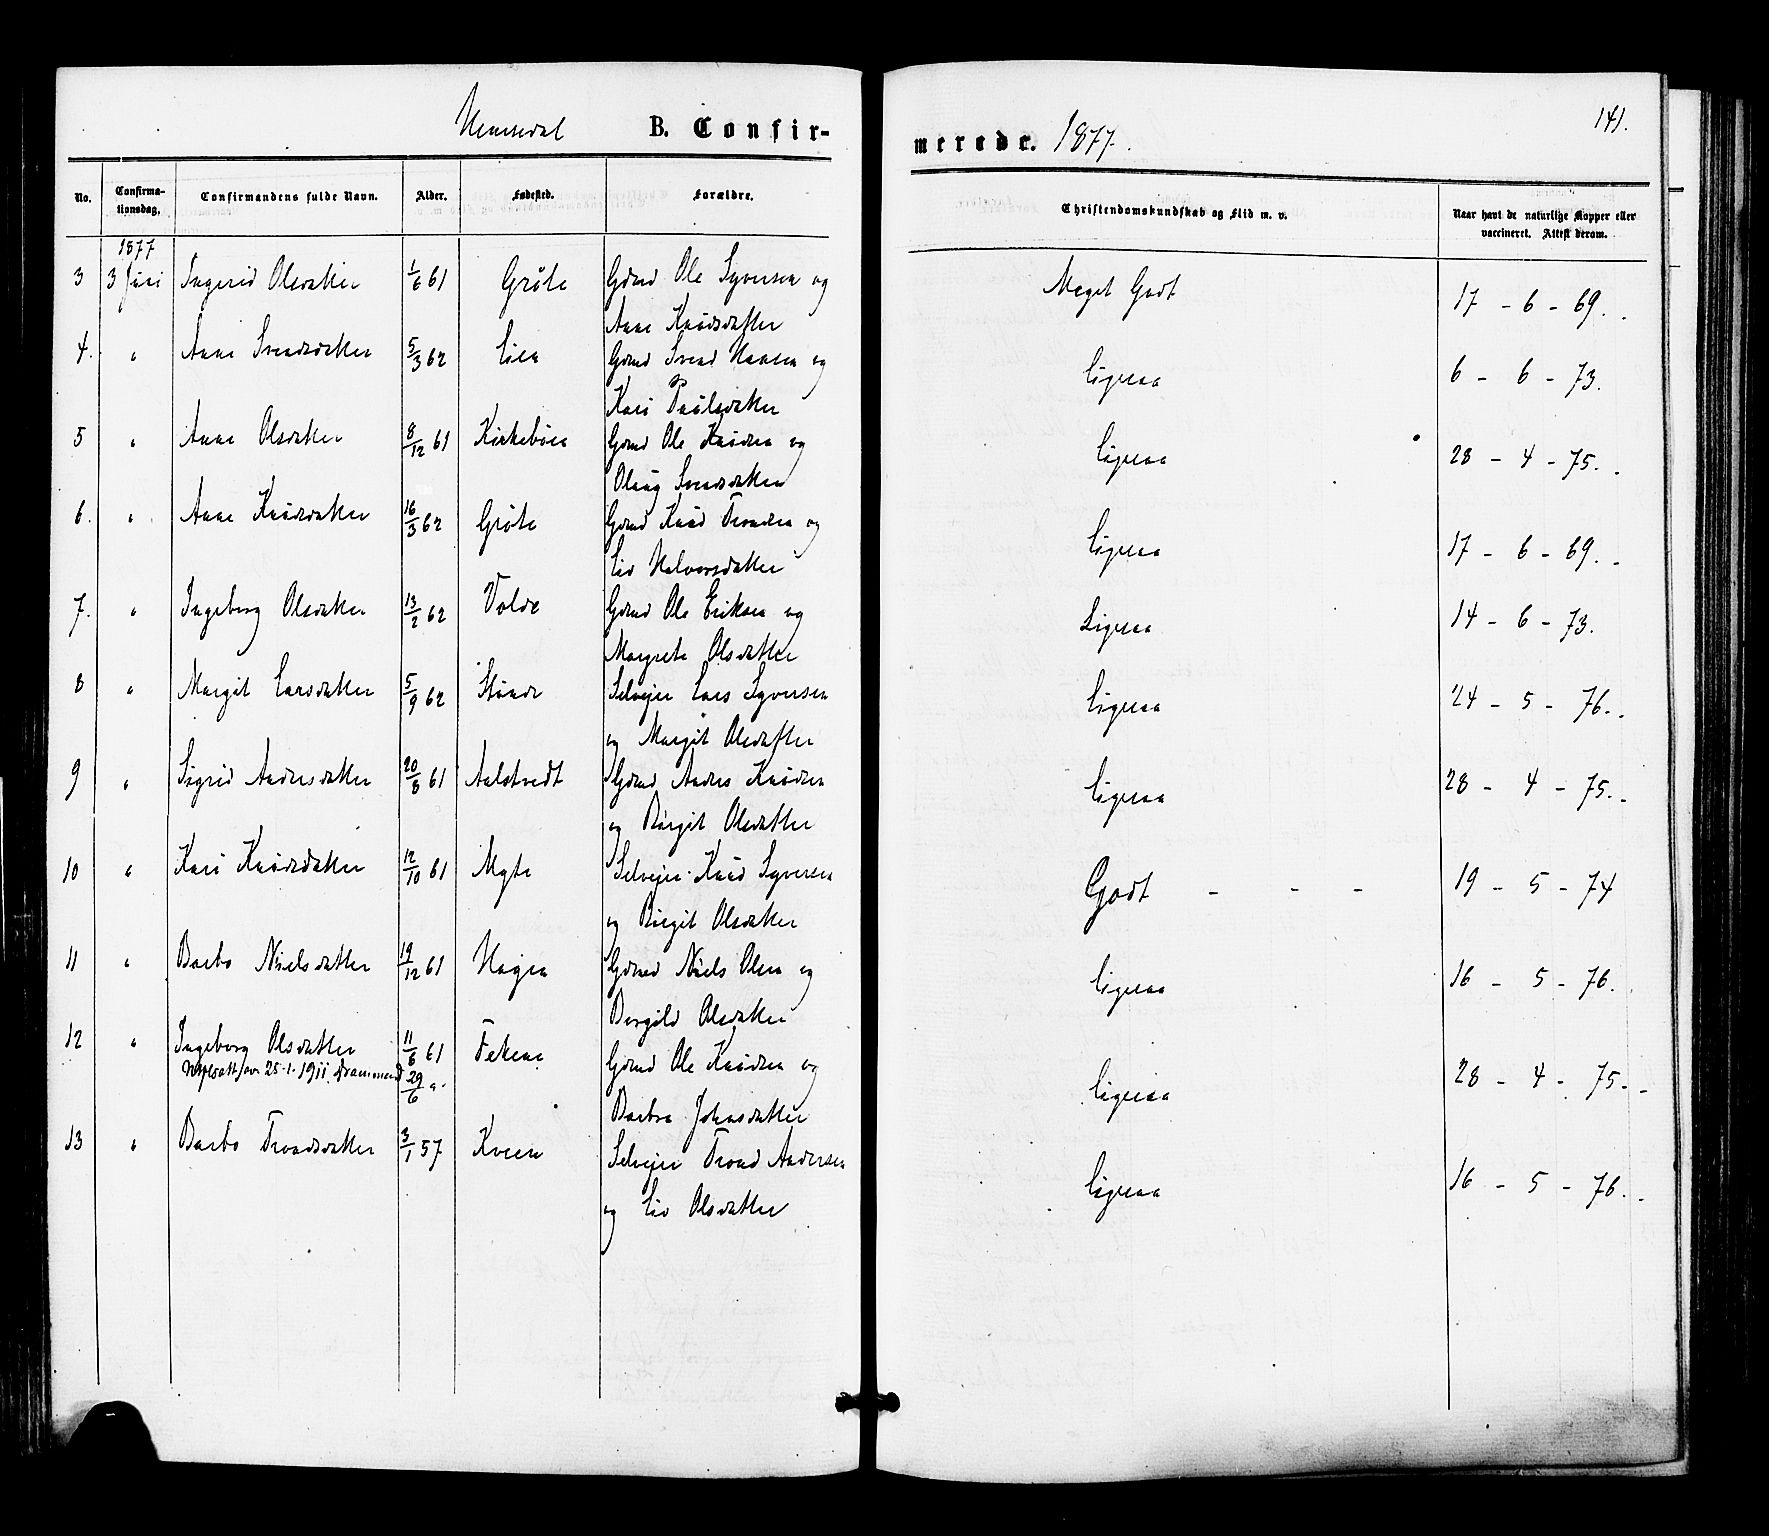 Hemsedal B. Confir-
merede. 1877.
141.
No. Confirma-tionsdag. Confirmandens fulde Navn. Alder. Fødested. Forældre. Christendomskundskab og Flid m. v. Naar havt de naturlige Kopper eller vaccineret. Attest derom.
1877
3 3 Juni Ingerid Olsdatter 1/6 61 Grøte Gdmd Ole Syversen og Meget Godt 17 - 6 - 69.
Anne Knudsdatter
4. " Anne Svendsdatter 5/3 62 Lien Gdmd Svend Hansen og Ligesaa 6 - 6 - 73.
Kari Paulsdatter
5 " Anne Olsdatter 8/12 61 Kirkebøen Gdmd Ole Knudsen og Ligesaa 28 - 4 - 75.
Olaug Svendsdatter
6. " Anne Knudsdatter 16/3 62 Grøte Gdmd Knud Trondsen og Ligesaa 17 - 6 - 69.
Liv Halvorsdatter
7. " Ingeborg Olsdatter 13/2 62 Volde Gdmd Ole Eriksen og Ligesaa 14 - 6 - 73.
Margrete Olsdatter
8 " Margit Larsdatter 5/9 62 Selveier Lars Syversen Ligesaa 24 - 5 - 76.
og Margit Olsdatter
9 " Sigrid Andersdatter 20/8 61 Aalstvedt Gdmd Anders Knudsen Ligesaa 28 - 4 - 75.
og Birgit Olsdatter
10 " Kari Knudsdatter 12/10 61 Mythe Selveier Knud Syversen Godt - - - 19 - 5 - 74
og Birgit Olsdatter
11 " Barbo Nielsdatter 19/12 61 Hagen Gdmd Niels Olsen og Ligesaa 16 - 5 - 76.
Bergild Olsdatter
12 " Ingeborg Olsdatter 11/6 61 Fekene Gdmd Ole Knudsen og Ligesaa 28 - 4 - 75.
25-1-1911. Drammen 29/6 ".
Barbra Johnsdatter
13 " Barbo Trondsdatter 3/1 57 Kveen Selveier Trond Andersen Ligesaa 16 - 5 - 76.
og Liv Olsdatter